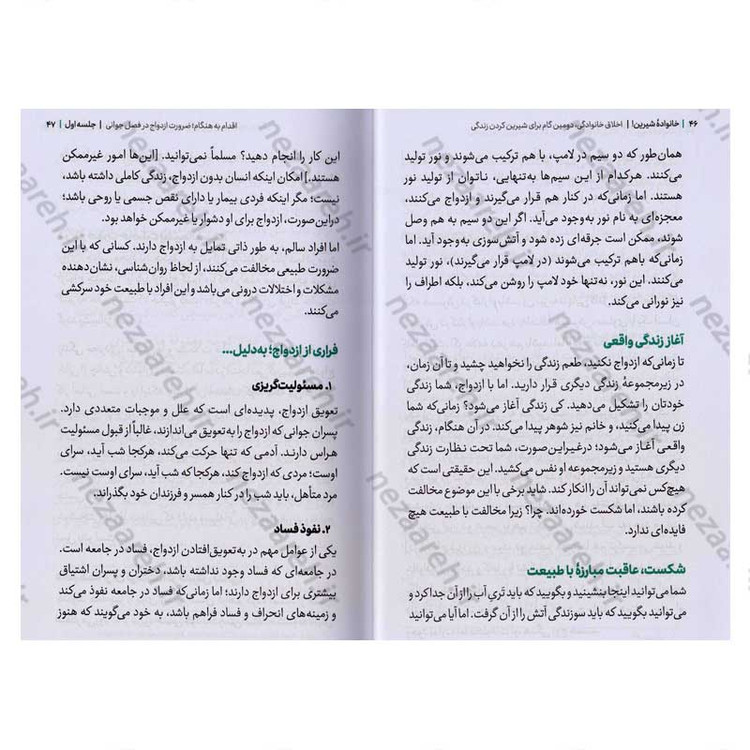 ۴۶ | خانوادهٔ شیرین! | اخلاق خانوادگی، دومین گام برای شیرین کردن زندگی
همان‌طور که دو سیم در لامپ، با هم ترکیب می‌شوند و نور تولید
می‌کنند. هرکدام از این سیم‌ها به‌تنهایی، ناتوان از تولید نور
هستند. اما زمانی‌که در کنار هم قرار می‌گیرند و ازدواج می‌کنند،
معجزه‌ای به نام نور به‌وجود می‌آید. اگر این دو سیم به هم وصل
شوند، ممکن است جرقه‌ای زده شود و آتش‌سوزی به‌وجود آید. اما
زمانی‌که باهم ترکیب می‌شوند (در لامپ قرار می‌گیرند)، نور تولید
می‌کنند. این نور، نه‌تنها خود لامپ را روشن می‌کند، بلکه اطراف را
نیز نورانی می‌کند.
آغاز زندگی واقعی
تا زمانی‌که ازدواج نکنید، طعم زندگی را نخواهید چشید و تا آن زمان،
در زیرمجموعهٔ زندگی دیگری قرار دارید. اما با ازدواج، شما زندگی
خودتان را تشکیل می‌دهید. کی زندگی آغاز می‌شود؟ زمانی‌که شما
زن پیدا می‌کنید، و خانم نیز شوهر پیدا می‌کند. در آن هنگام، زندگی
واقعی آغاز می‌شود؛ درغیراین‌صورت، شما تحت نظارت زندگی
دیگری هستید و زیرمجموعه او نفس می‌کشید. این حقیقتی است که
هیچ‌کس نمی‌تواند آن را انکار کند. شاید برخی با این موضوع مخالفت
کرده باشند، اما شکست خورده‌اند. چرا؟ زیرا مخالفت با طبیعت هیچ
فایده‌ای ندارد.
شکست، عاقبت مبارزهٔ با طبیعت
شما می‌توانید اینجا بنشینید و بگویید که باید تَریِ آب را از آن جدا کرد و
می‌توانید بگویید که باید سوزندگی آتش را از آن گرفت. اما آیا می‌توانید
اقدام به هنگام؛ ضرورت ازدواج در فصل جوانی | جلسه اول | ۴۷
این کار را انجام دهید؟ مسلماً نمی‌توانید. [این‌ها امور غیرممکن
هستند.] امکان اینکه انسان بدون ازدواج، زندگی کاملی داشته باشد،
نیست؛ مگر اینکه فردی بیمار یا دارای نقص جسمی یا روحی باشد؛
دراین‌صورت، ازدواج برای او دشوار یا غیرممکن خواهد بود.
اما افراد سالم، به طور ذاتی تمایل به ازدواج دارند. کسانی که با این
ضرورت طبیعی مخالفت می‌کنند، از لحاظ روان‌شناسی، نشان‌دهنده
مشکلات و اختلالات درونی می‌باشد و این افراد با طبیعت خود سرکشی
می‌کنند.
فراری از ازدواج؛ به‌دلیل...
۱. مسئولیت‌گریزی
تعویق ازدواج، پدیده‌ای است که علل و موجبات متعددی دارد.
پسران جوانی که ازدواج را به‌تعویق می‌اندازند، غالباً از قبول مسئولیت
هراس دارند. آدمی که تنها حرکت می‌کند، هرکجا شب آید، سرای
اوست؛ مردی که ازدواج کند، هرکجا که شب آید، سرای اوست نیست.
مرد متأهل، باید شب را در کنار همسر و فرزندان خود بگذراند.
۲. نفوذ فساد
یکی از عوامل مهم در به‌تعویق‌افتادن ازدواج، فساد در جامعه است.
در جامعه‌ای که فساد وجود نداشته باشد، دختران و پسران اشتیاق
بیشتری برای ازدواج دارند؛ اما زمانی‌که فساد در جامعه نفوذ می‌کند
و زمینه‌های انحراف و فساد فراهم باشد، به خود می‌گویند که هنوز
nezaareh.ir